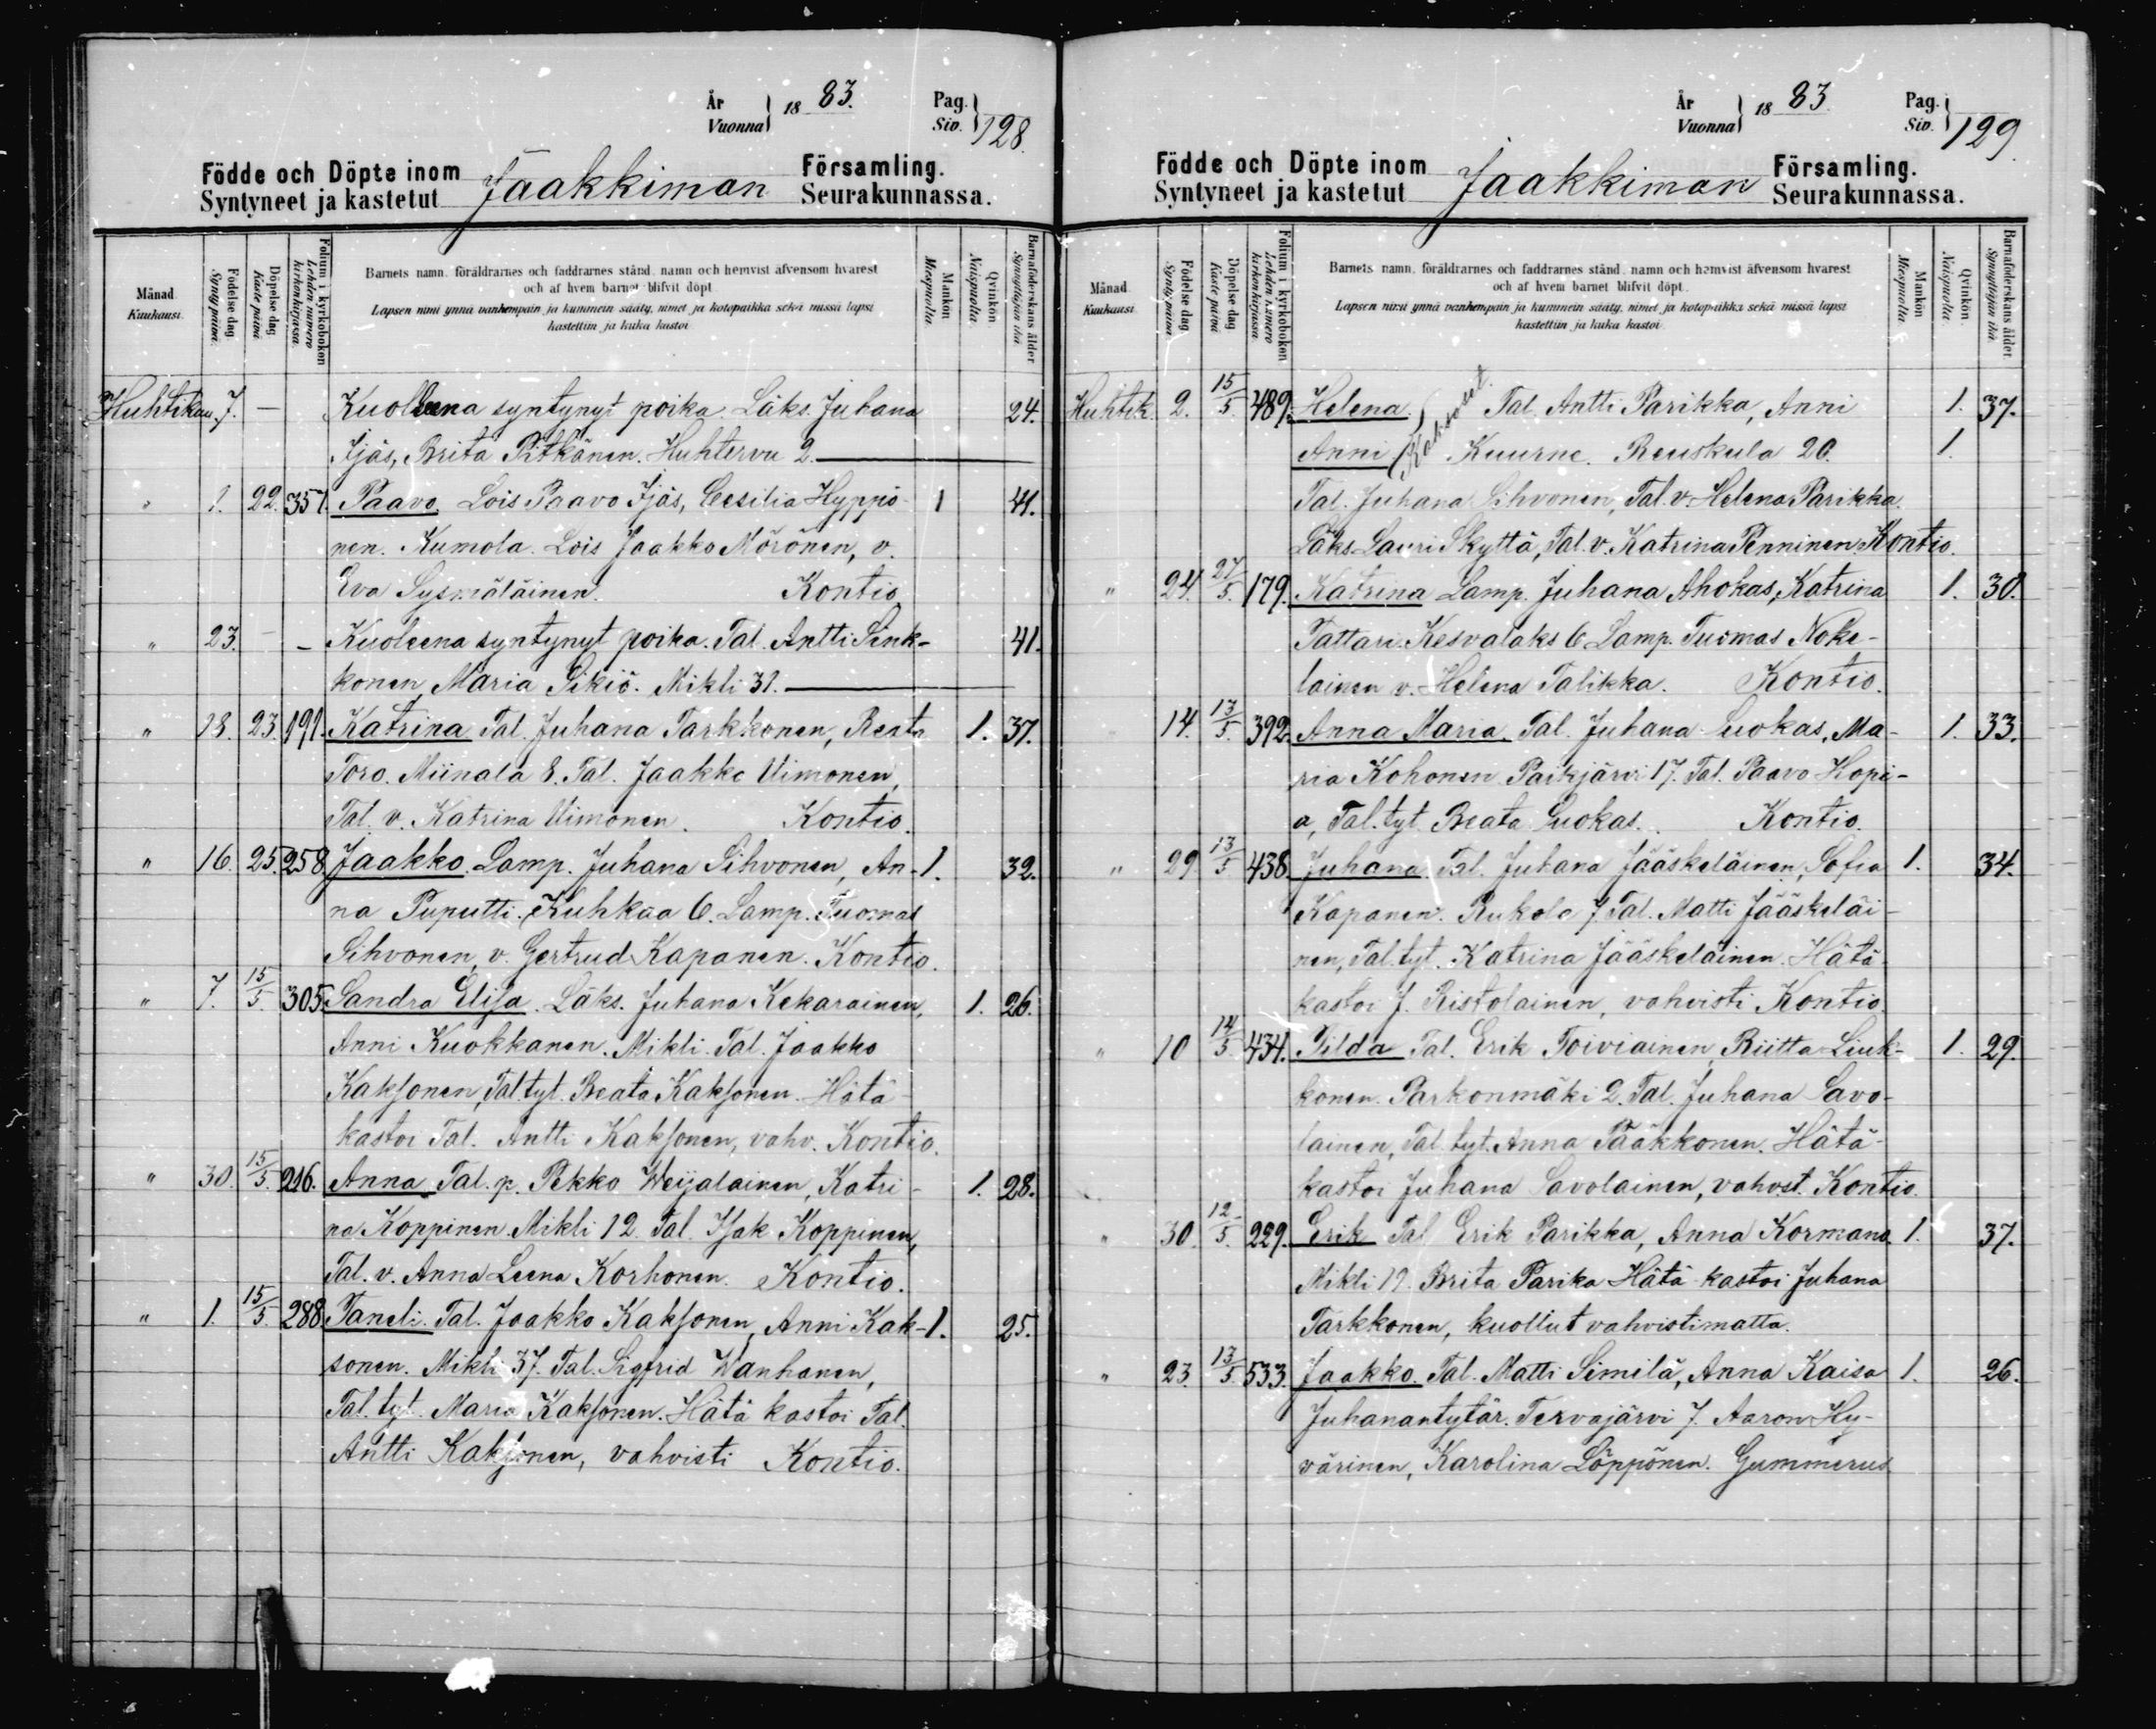 År
Vuonna } 18 83.
Pag.
Siv. } 128.
Födde och Döpte inom Jaakkiman Församling.
Syntyneet ja kastetut Seurakunnassa.
Månad.
Kuukausi.
Födelse dag.
Synty päivä.
Döpelse dag.
Kaste päivä.
Folium i kyrkoboken
Lehden numero
kirkonkirjassa.
Barnets namn, föräldrarnes och faddrarnes stånd, namn och hemvist äfvensom hvarest
och af hvem barnet blifvit döpt.
Lapsen nimi ynnä vanhempain ja kummein sääty, nimet ja kotopaikka sekä missä lapsi
kastettiin ja kuka kastoi.
Mankön
Miespuolia.
Qvinkön
Naispuolia.
Barnaföderskans ålder
Synnyttäjän ikä
Huhtikuu. 7. — Kuolleena syntynyt poika. Läks. Juhana 24.
Ijäs, Brita Pitkänen. Huhtervu 2.
" 1. 22. 357. Paavo. Lois Paavo Ijäs, Cesilia Hyppö- 1 41.
nen. Kumola. Lois Jaakko Mörönen, v.
Eva Sysmäläinen. Kontio
" 23. — — Kuoleena syntynyt poika. Tal. Antti Sink- 41.
konen, Maria Sikiö. Mikli 31.
" 18. 23. 191. Katrina Tal. Juhana Tarkkonen, Reeta 1. 37.
Toro. Miinala 8. Tal. Jaakko Uimonen,
Tal. v. Katrina Uimonen. Kontio.
" 16. 25. 258. Jaakko. Lamp. Juhana Sihvonen, An- 1. 32.
na Puputti. Kuhkaa 6. Lamp. Tuomas
Sihvonen, v. Gertrud Kapanen. Kontio.
" 7. 15/5. 305. Sandra Elisa. Läks. Juhana Kekarainen, 1. 26.
Anni Kuokkanen. Mikli. Tal. Jaakko
Kaksonen, Tal. tyt. Beata Kaksonen. Hätä-
kastoi Tal. Antti Kaksonen, vahv. Kontio.
" 30. 15/5. 216. Anna Tal. p. Pekko Weijalainen, Katri- 1. 28.
na Koppinen. Mikli 12. Tal. Isak Koppinen,
Tal. v. Anna Leena Korhonen. Kontio.
" 1. 15/5. 288. Taneli. Tal. Jaakko Kaksonen, Anni Kak- 1. 25.
sonen. Mikli 37. Tal. Sigfrid Wanhanen,
Tal. tyt. Maria Kaksonen. Hätä kastoi Tal.
Antti Kaksonen, vahvisti Kontio.
År
Vuonna } 18 83.
Pag.
Siv. } 129.
Födde och Döpte inom Jaakkiman Församling.
Syntyneet ja kastetut Seurakunnassa.
Månad.
Kuukausi.
Födelse dag.
Synty päivä.
Döpelse dag.
Kaste päivä.
Folium i kyrkoboken
Lehden numero
kirkonkirjassa.
Barnets namn, föräldrarnes och faddrarnes stånd, namn och hemvist äfvensom hvarest
och af hvem barnet blifvit döpt.
Lapsen nimi ynnä vanhempain ja kummein sääty, nimet ja kotopaikka sekä missä lapsi
kastettiin ja kuka kastoi.
Mankön
Miespuolia.
Qvinkön
Naispuolia.
Barnaföderskans ålder
Synnyttäjän ikä
Huhtik. 2. 15/5. 489. Helena } Kaksoset. Tal. Antti Parikka, Anni 1. 37.
Anni } Kuurne. Reuskula 20. 1.
Tal. Juhana Sihvonen, Tal. v. Helena Parikka.
Läks. Lauri Skyttä, Tal. v. Katrina Penninen Kontio.
" 24. 27/5. 179. Katrina Lamp. Juhana Ahokas, Katrina 1. 30.
Tattari. Kesvalaks 6. Lamp. Tuomas Noke-
lainen v. Helena Talikka. Kontio.
14. 13/5. 392. Anna Maria. Tal. Juhana Luokas, Ma- 1. 33.
ria Kohonen. Paikjärvi 17. Tal. Paavo Hopi-
a, Tal. tyt. Beata Luokas. Kontio.
" 29. 13/5 438. Juhana. Tal. Juhana Jääskeläinen, Sofia 1. 34.
Kapanen. Rukola 7. Tal. Matti Jääskeläi-
nen, Tal. tyt. Katrina Jääskeläinen. Hätä-
kastoi J. Ristolainen, vahvisti Kontio.
" 10 14/5. 434. Tilda Tal. Erik Toiviainen, Riitta Liuk- 1. 29.
konen. Parkonmäki 2. Tal. Juhana Savo-
lainen, Tal. tyt. Anna Pääkkonen. Hätä-
kastoi Juhana Savolainen, vahvst. Kontio.
" 30. 12/5. 229. Erik Tal Erik Parikka, Anna Kormano. 1. 37.
Mikli 19. Brita Parika Hätä kastoi Juhana
Tarkkonen, kuollut vahvistimatta.
" 23. 13/5. 533. Jaakko. Tal. Matti Similä, Anna Kaisa 1. 26.
Juhanantytär. Tervajärvi 7. Aaron Hy-
värinen, Karolina Löppönen. Gummerus.